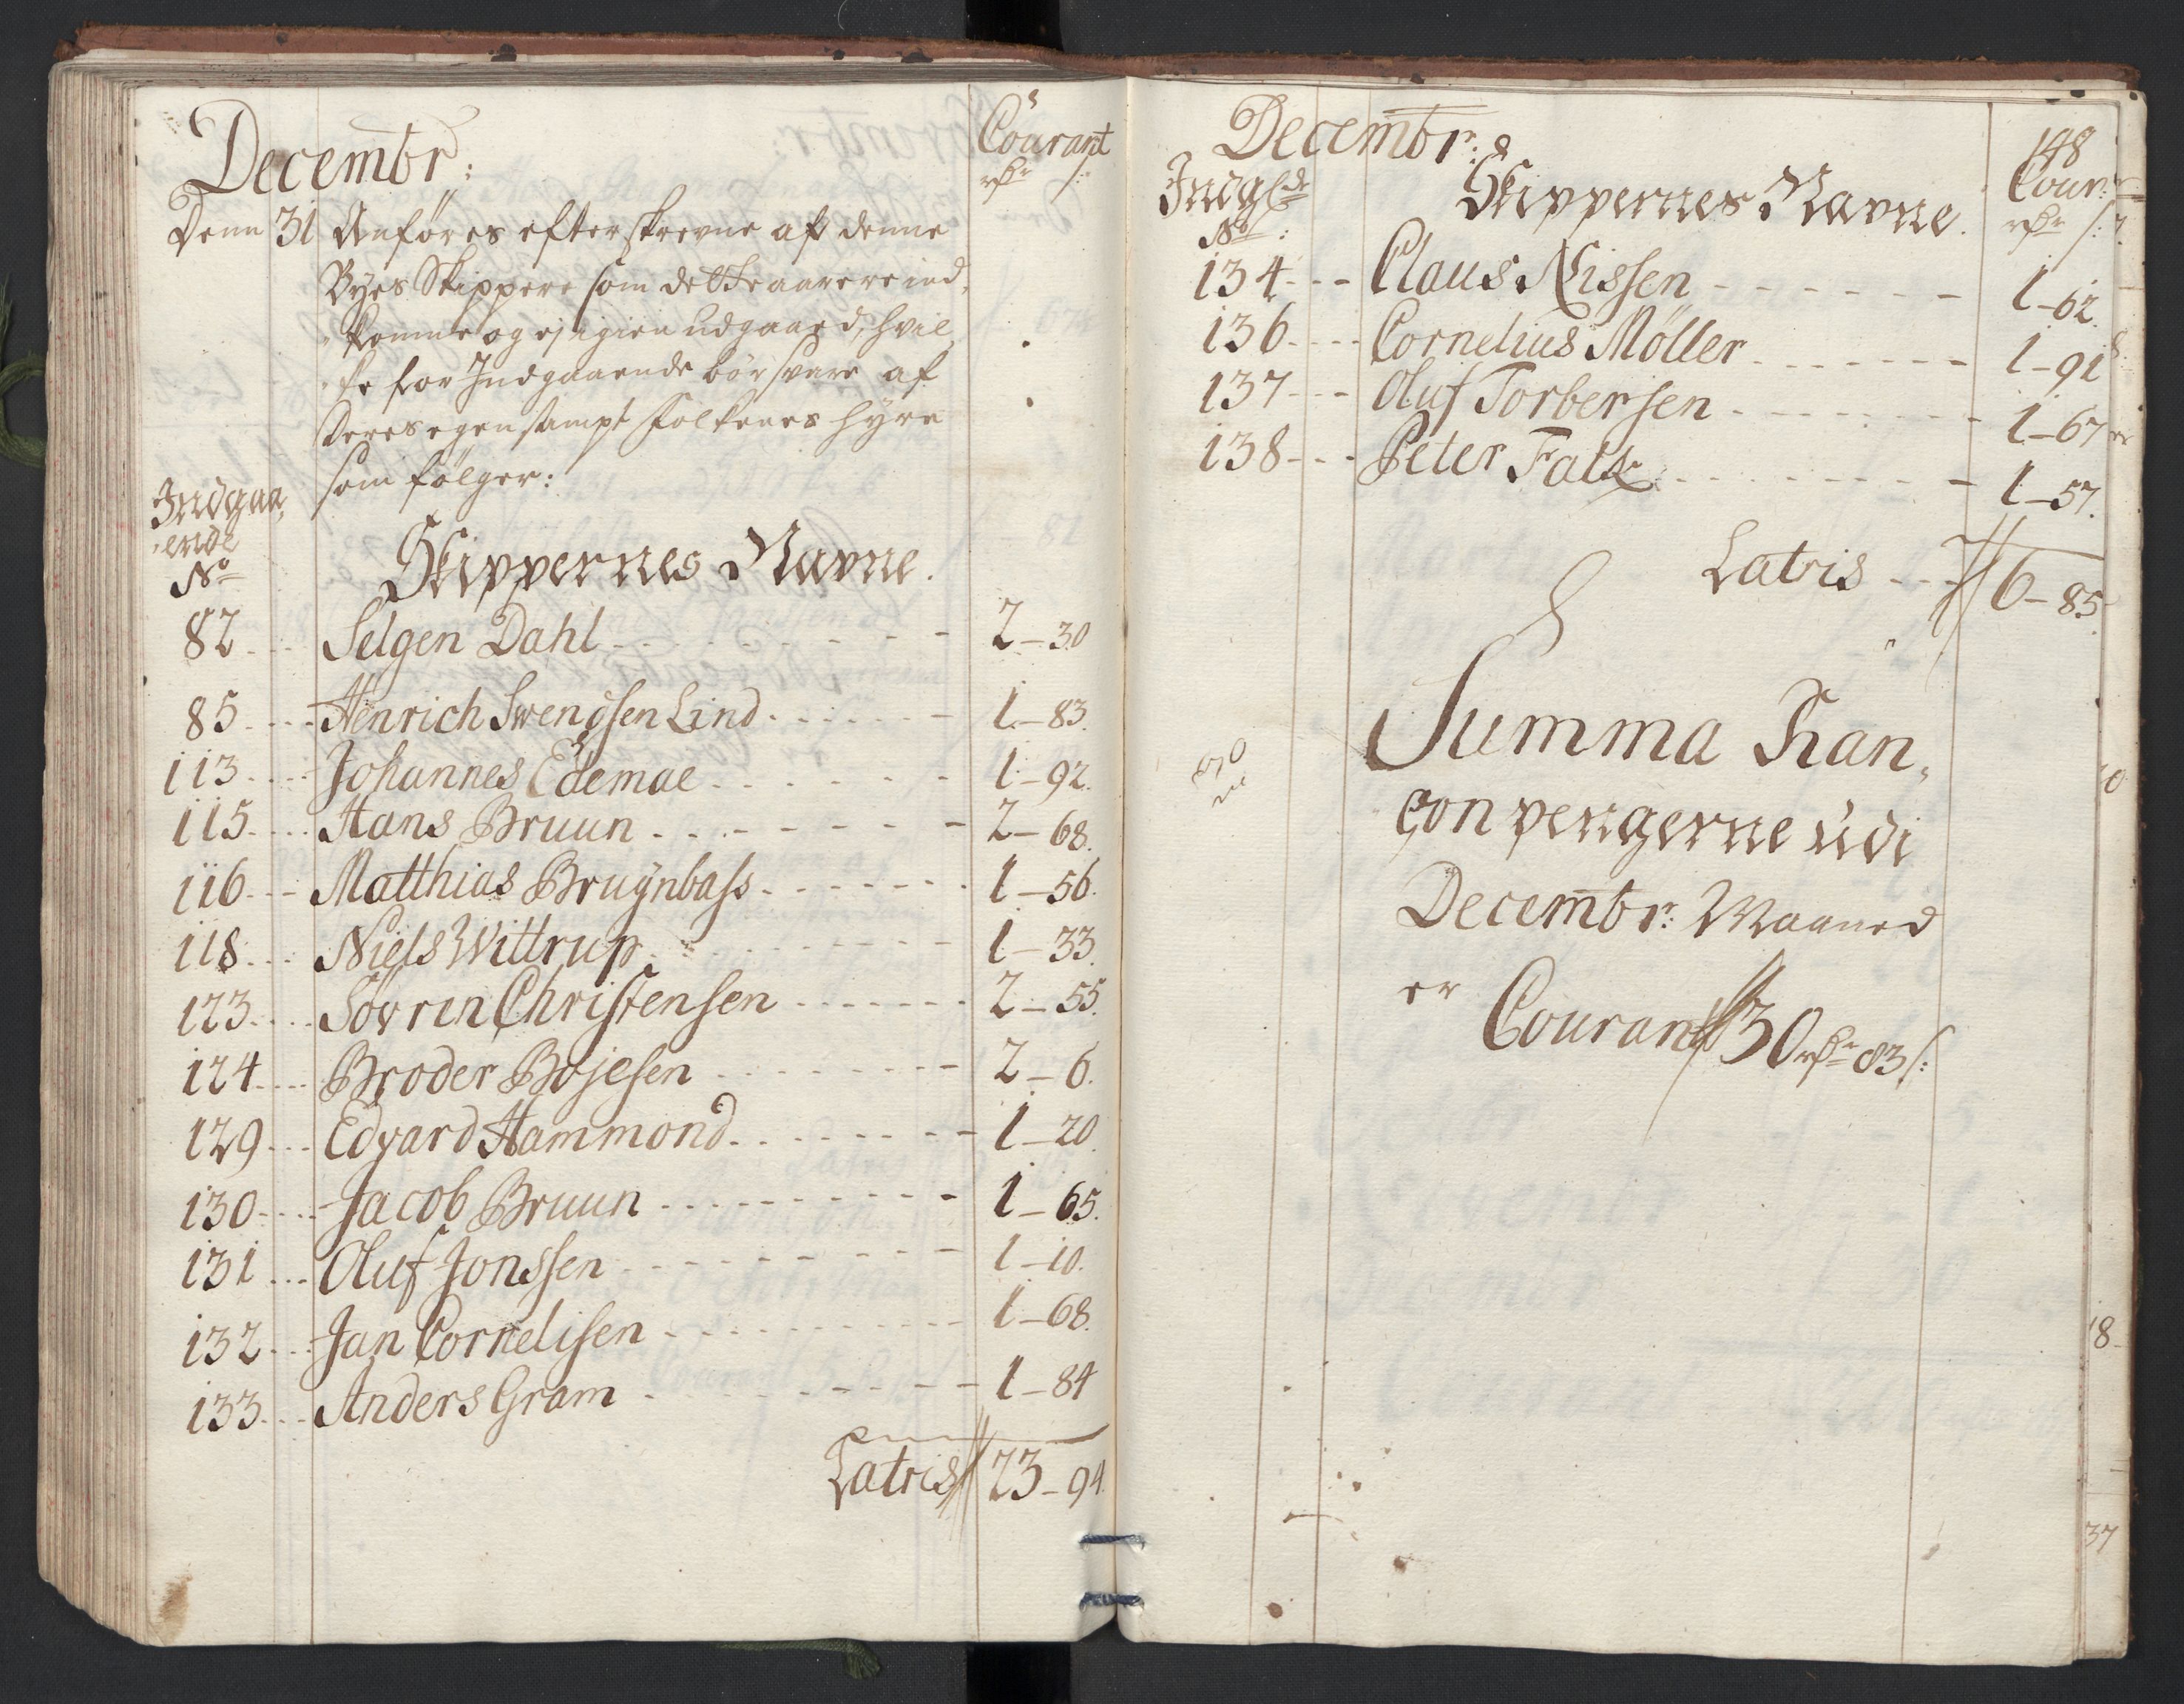 Decembr:
Courant
rdr s:
Denn 31 Anföres efterskrevne af denne
Byes Skippere som dette aar ere ind,
komne og ej igien udgaaed, hvil,
ke for Indgaaende bör svare af
Deres egen sampt Folkenes hyre
som fölger:
Indgaa,
ende
No
Skippernes Navne.
82 Selgen Dahl 2-30
85 Henrich Swendsen Lind 1-83.
113 Johannes Edemae 1-92.
115 Hans Bruun 2-68.
116 Matthias Bruynbass 1-56.
118 Niels Wittrup 1-33.
123 Sövren Christensen 2-55.
124 Broder Bojesen 2-6.
129 Edvard Hammond 1-20.
130 Jacob Bruun 1-65.
131 Oluf Jonssen 1-10.
132 Jan Cornelisen 1-68.
133 Anders Gram 1-84
Latris 23-94.
Decembr:
148
Indgde
No:
Skippernes Navne.
Cour:
rdr s:
134 Claus Nissen 1-62.
136 Cornelius Möller 1-91
137 Oluf Torbersen 1-67
138 Peter Falk 1-57.
Latris 6-85
Summa Ran,
çon pengerne udi
Decembr: Maaned
er Courant 30 rdr 83 s: